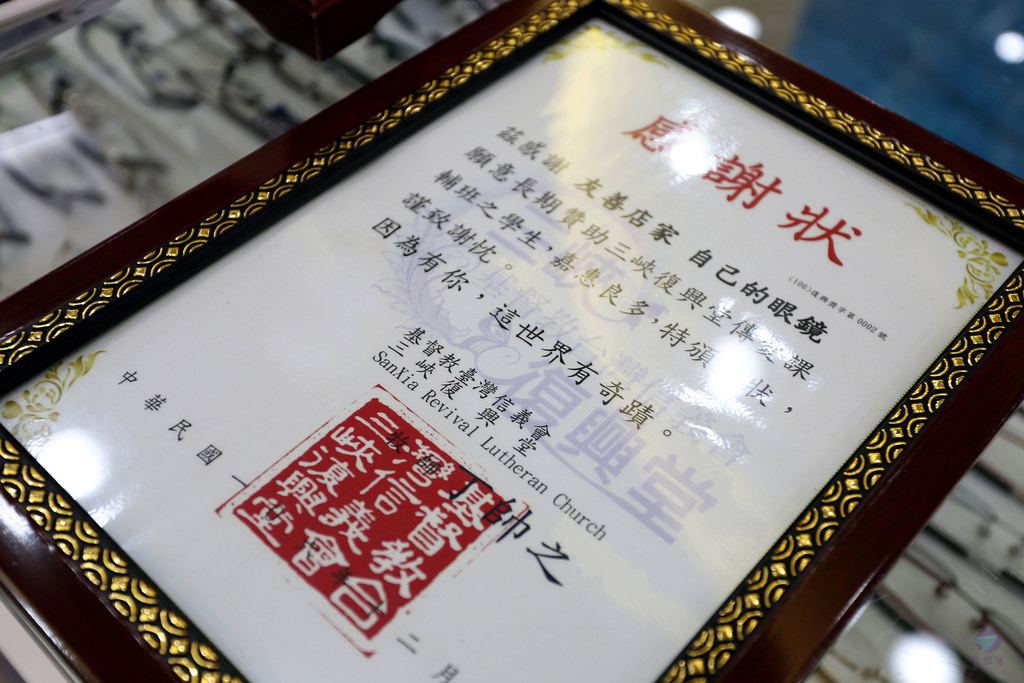 感謝狀
(106)復興獎字第0002號
茲感謝 友善店家 自己的眼鏡
願意長期贊助三峽復興堂傳愛課
輔班之學生，嘉惠良多，特頒 狀，
謹致謝忱。
因為有你，這世界有奇蹟。
基督教臺灣信義會
三峽復興堂
SanXia Revival Lutheran Church
牧師 丁帥之
基督教台
灣信義會
三峽復興
堂
中華民國一 十二月
復興堂